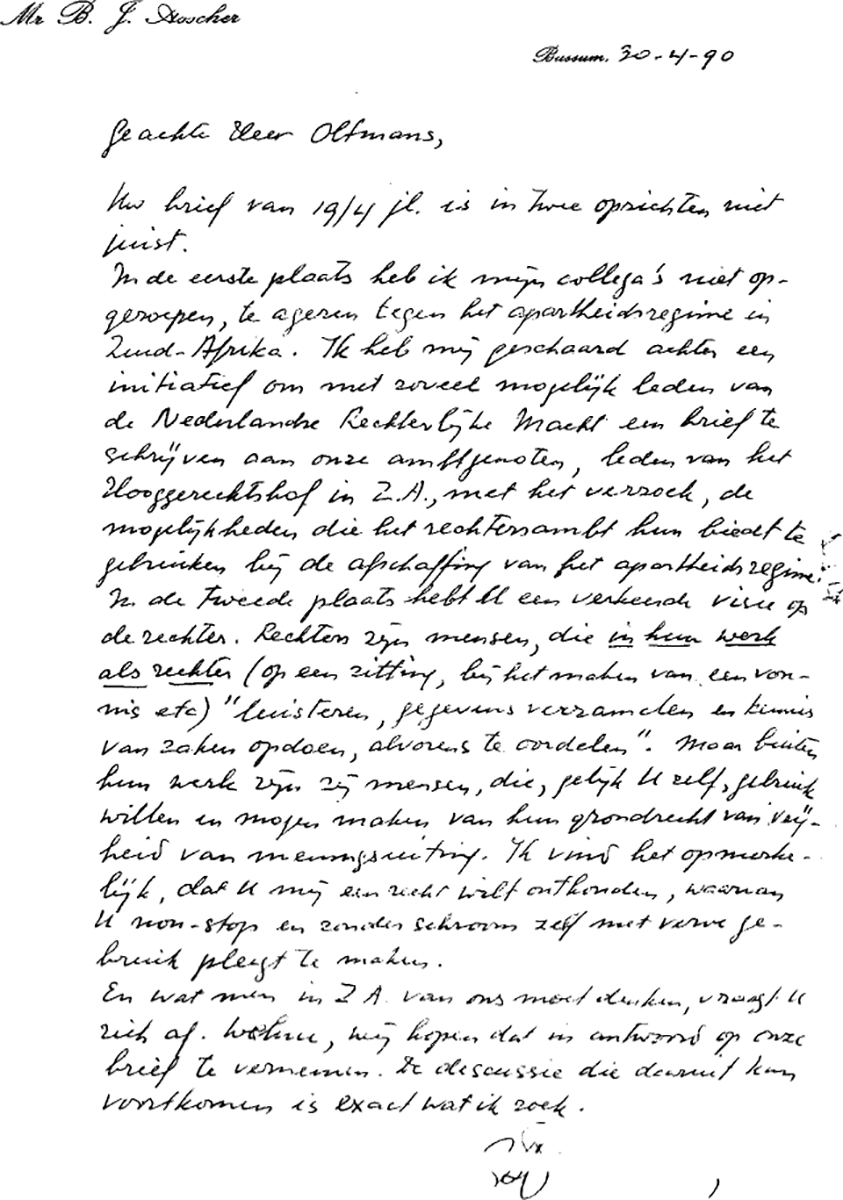 Mr B. J. Asscher
Bussum, 30-4-90
Geachte Heer Oltmans,
Uw brief van 19/4 jl. is in twee opzichten niet
juist.
In de eerste plaats heb ik mijn collega's niet op-
geroepen, te ageren tegen het apartheidsregime in
Zuid-Afrika. Ik heb mij geschaard achter een
initiatief om met zoveel mogelijk leden van
de Nederlandse Rechterlijke Macht een brief te
schrijven aan onze ambtgenoten, leden van het
Hooggerechtshof in Z.A., met het verzoek, de
mogelijkheden die het rechtersambt hun biedt te
gebruiken bij de afschaffing van het apartheidsregime.
In de tweede plaats hebt U een verkeerde visie op
de rechter. Rechters zijn mensen, die in hun werk
als rechter (op een zitting, bij het maken van een von-
nis etc) "luisteren, gegevens verzamelen en kennis
van zaken opdoen, alvorens te oordelen". Maar buiten
hun werk zijn zij mensen, die, gelijk U zelf, gebruik
willen en mogen maken van hun grondrecht van vrij-
heid van meningsuiting. Ik vind het opmerke-
lijk, dat U mij een recht wilt onthouden, waarvan
U non-stop en zonder schroom zelf met verve ge-
bruik pleegt te maken.
En wat men in Z.A. van ons moet denken, vraagt U
zich af. Welnu, wij hopen dat in antwoord op onze
brief te vernemen. De discussie die daaruit kan
voortkomen is exact wat ik zoek.